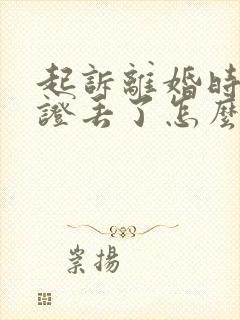 起訴離婚時
證丟了怎麼
崇揚